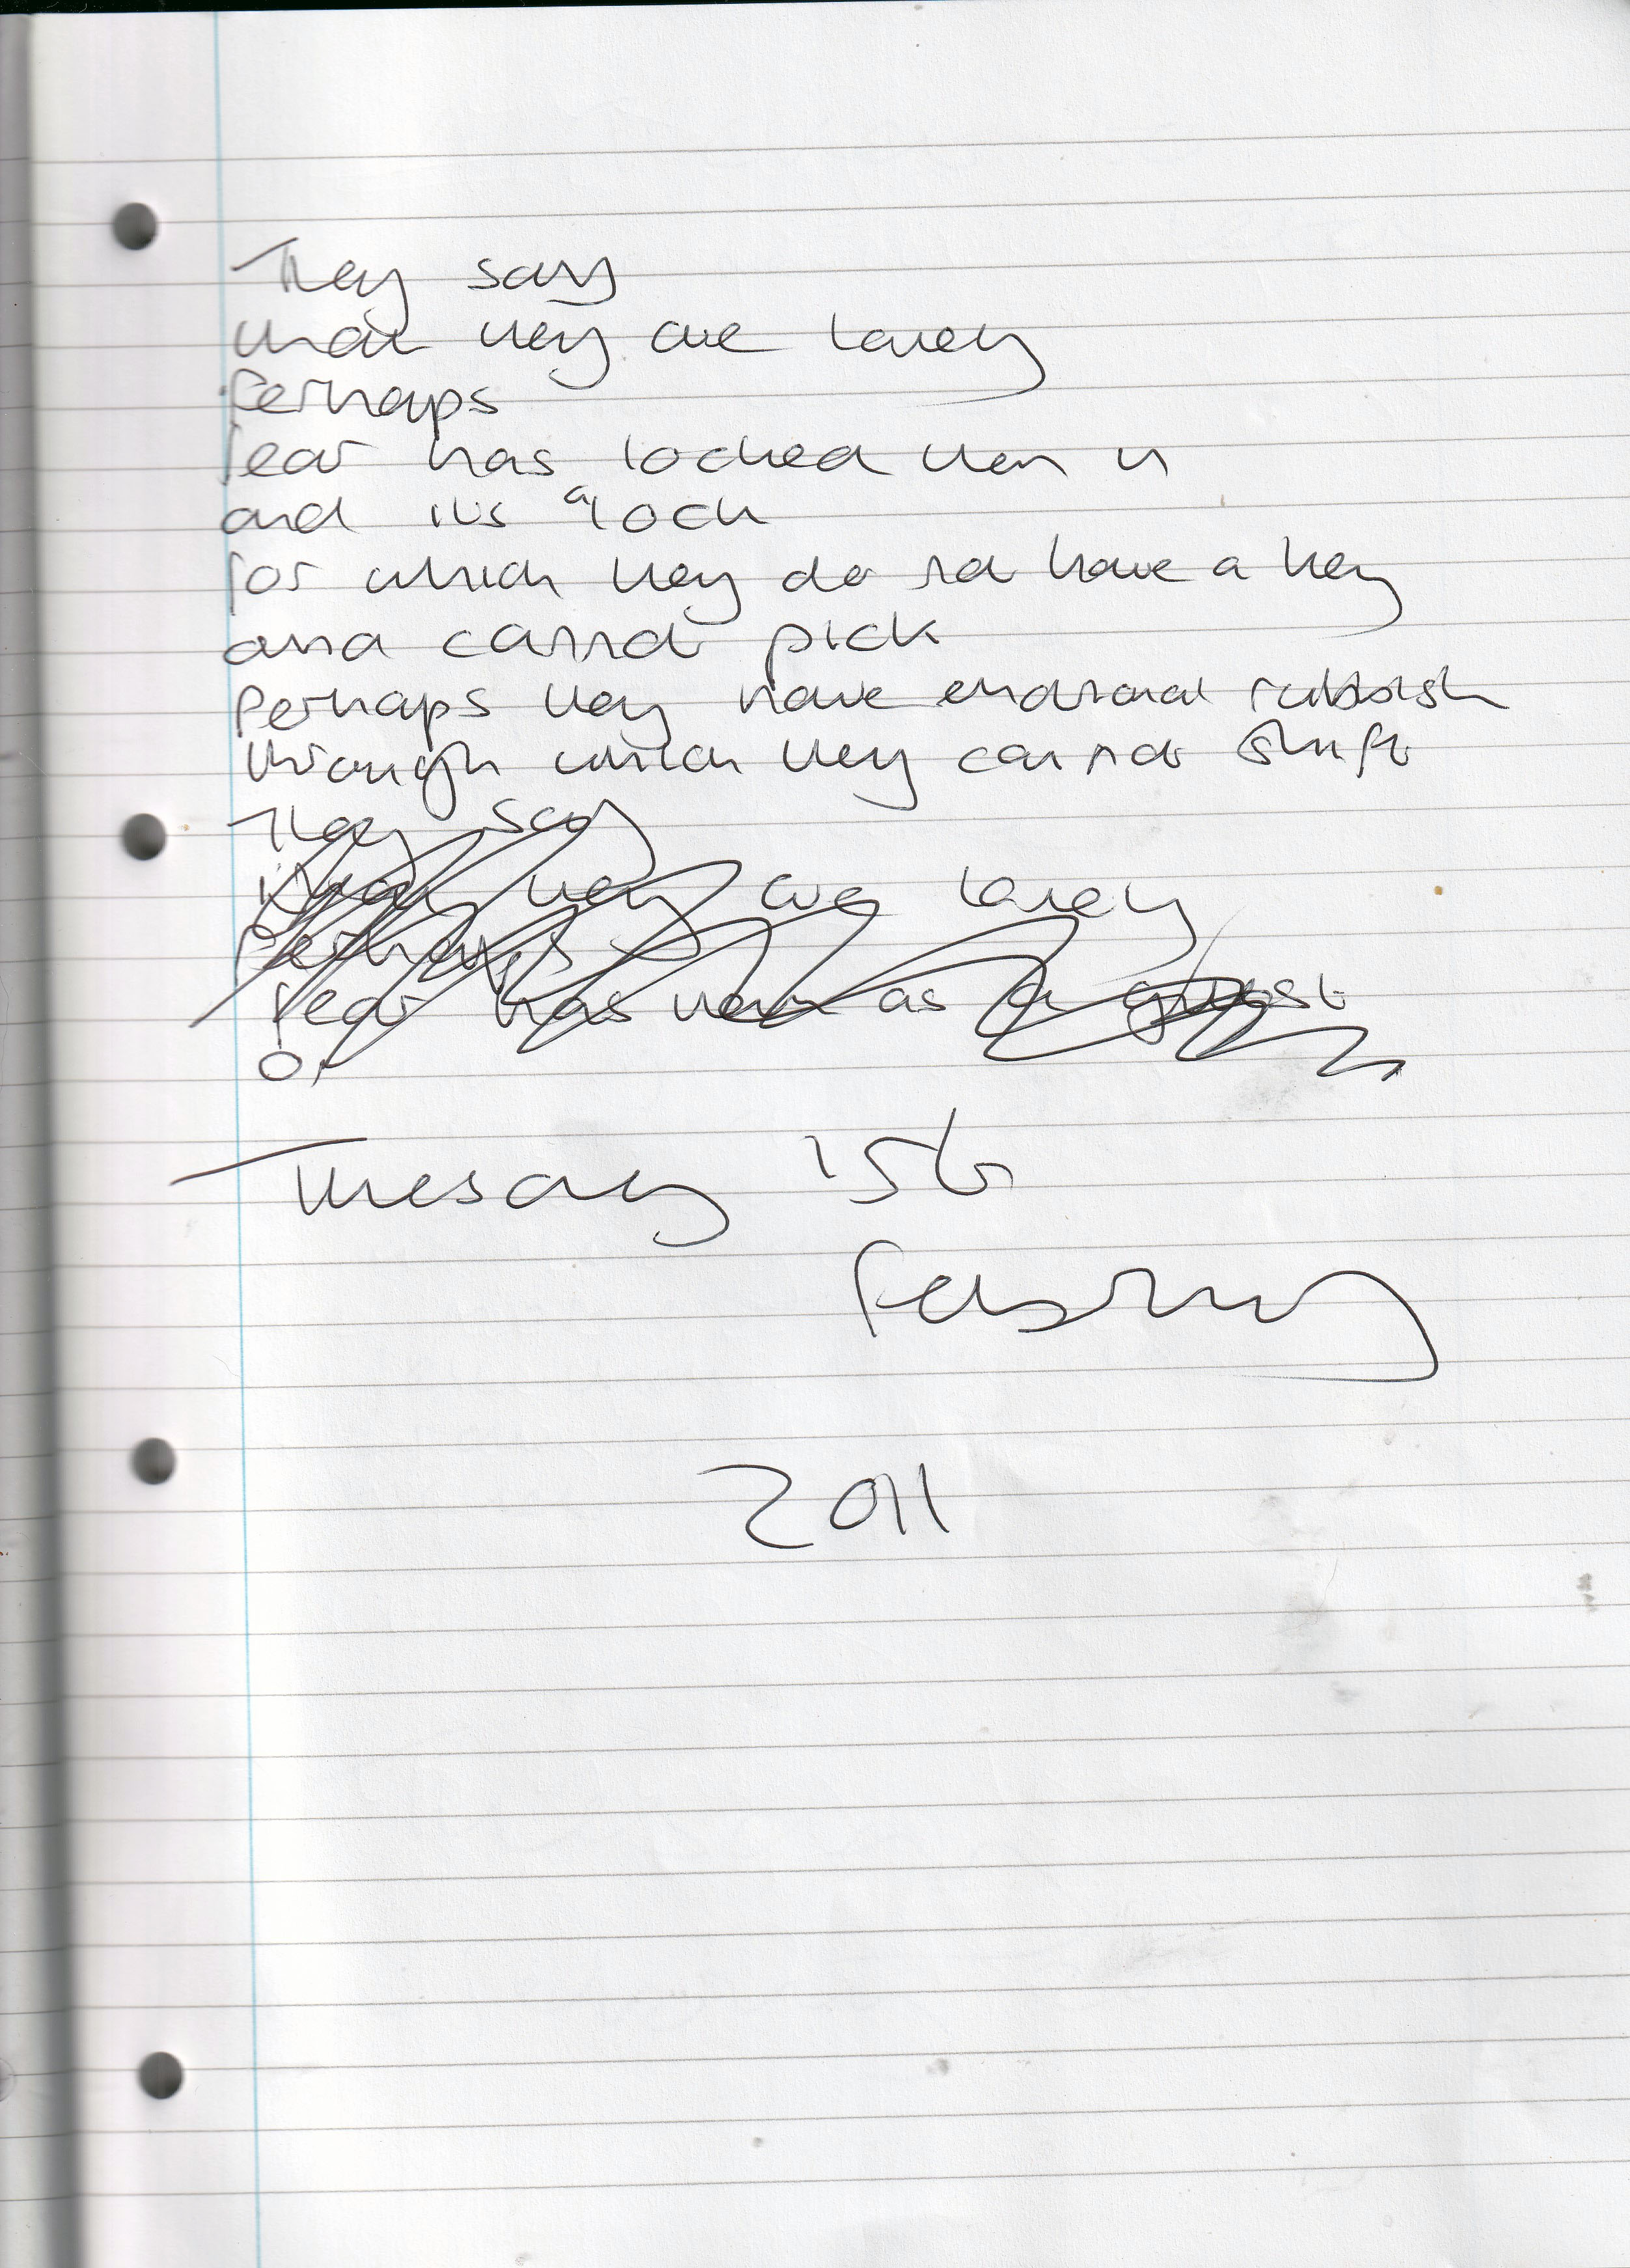 They say
that they are lonely
Perhaps
fear has locked them in
and its a lock
for which they do not have a key
and cannot pick
Perhaps they have emotional rubbish
through which they cannot shift
They say
that they are lonely
Perhaps
fear has them as a
or
Tuesday 15th
February
2011